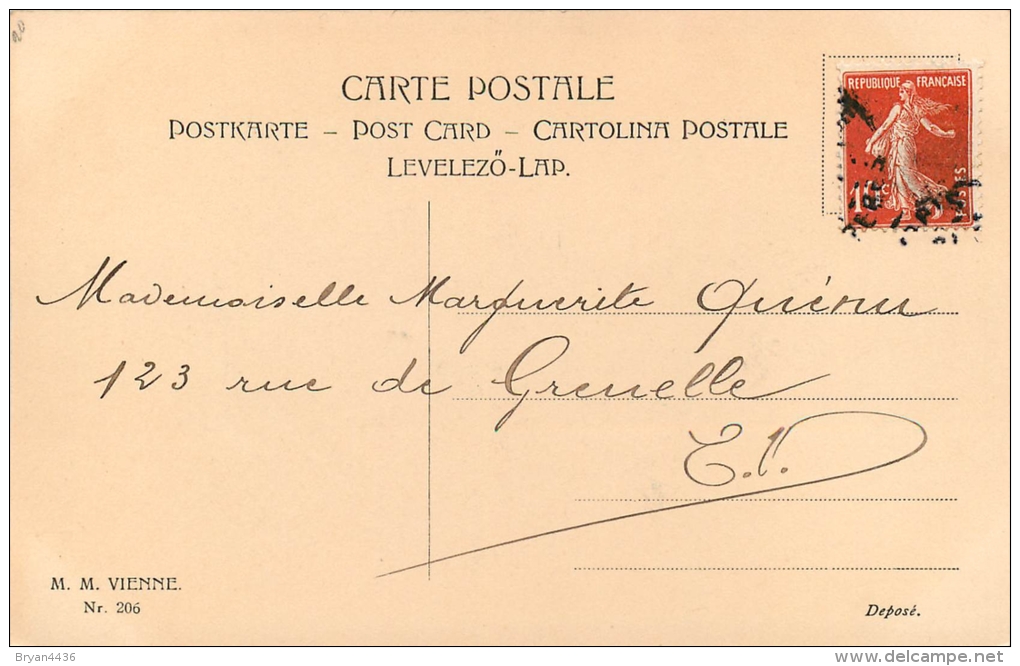 20
CARTE POSTALE
POSTKARTE – POST CARD – CARTOLINA POSTALE
LEVELEZŐ-LAP.
REPUBLIQUE FRANÇAISE
10c
POSTES
Mademoiselle Marguerite Quénu
123 rue de Grenelle
E.V.
M. M. VIENNE.
Nr. 206
Deposé.
Bryan4436
delcampe.net